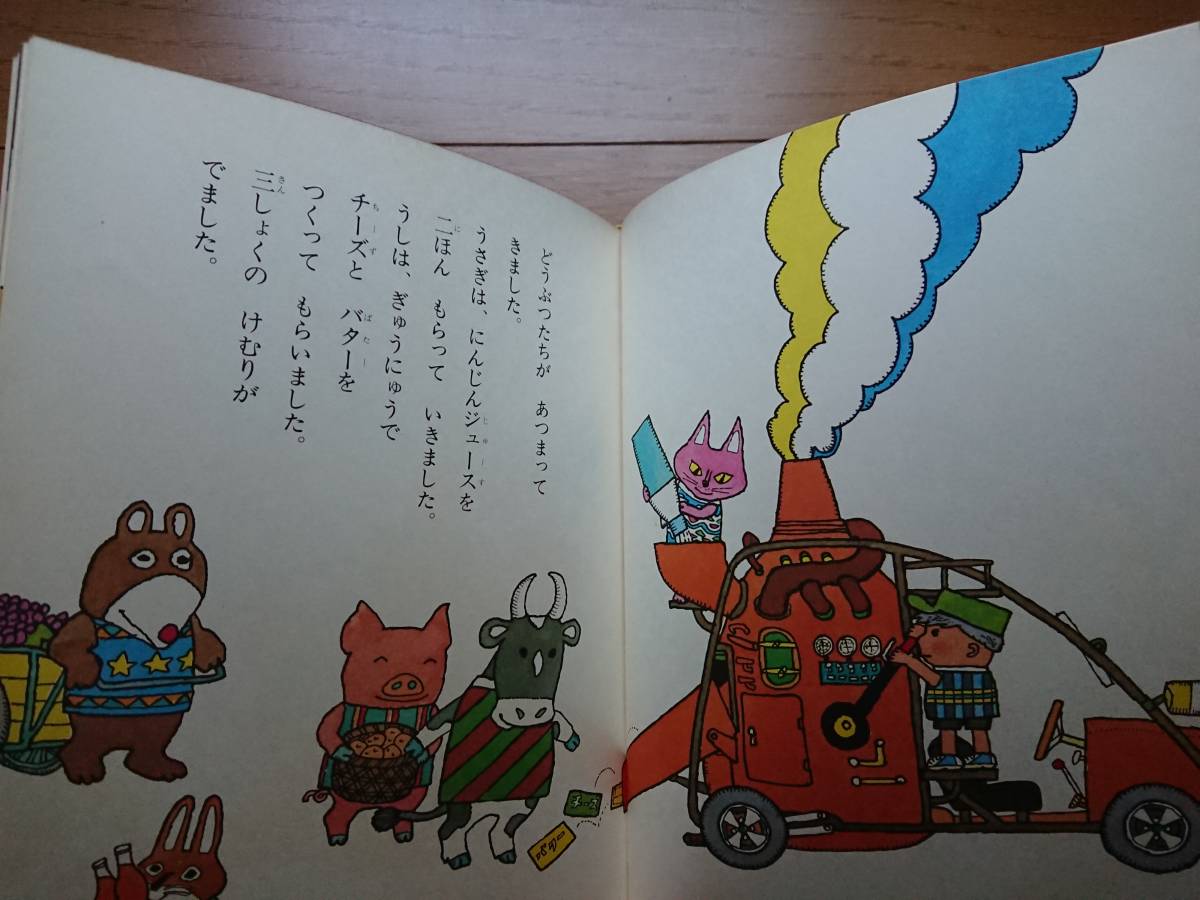 どうぶつたちが　あつまって
きました。
うさぎは、にんじんジュースを
二ほん　もらって　いきました。
うしは、ぎゅうにゅうで
チーズと　バターを
つくって　もらいました。
三しょくの　けむりが
でました。
チーズ
バター